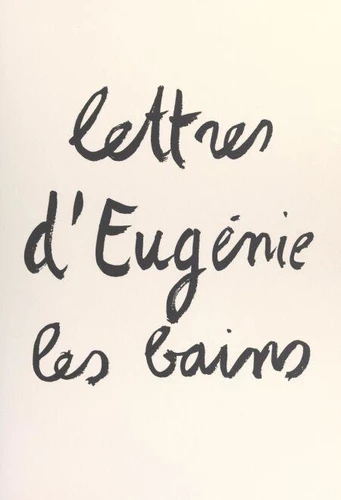 lettres
d'Eugénie
les bains